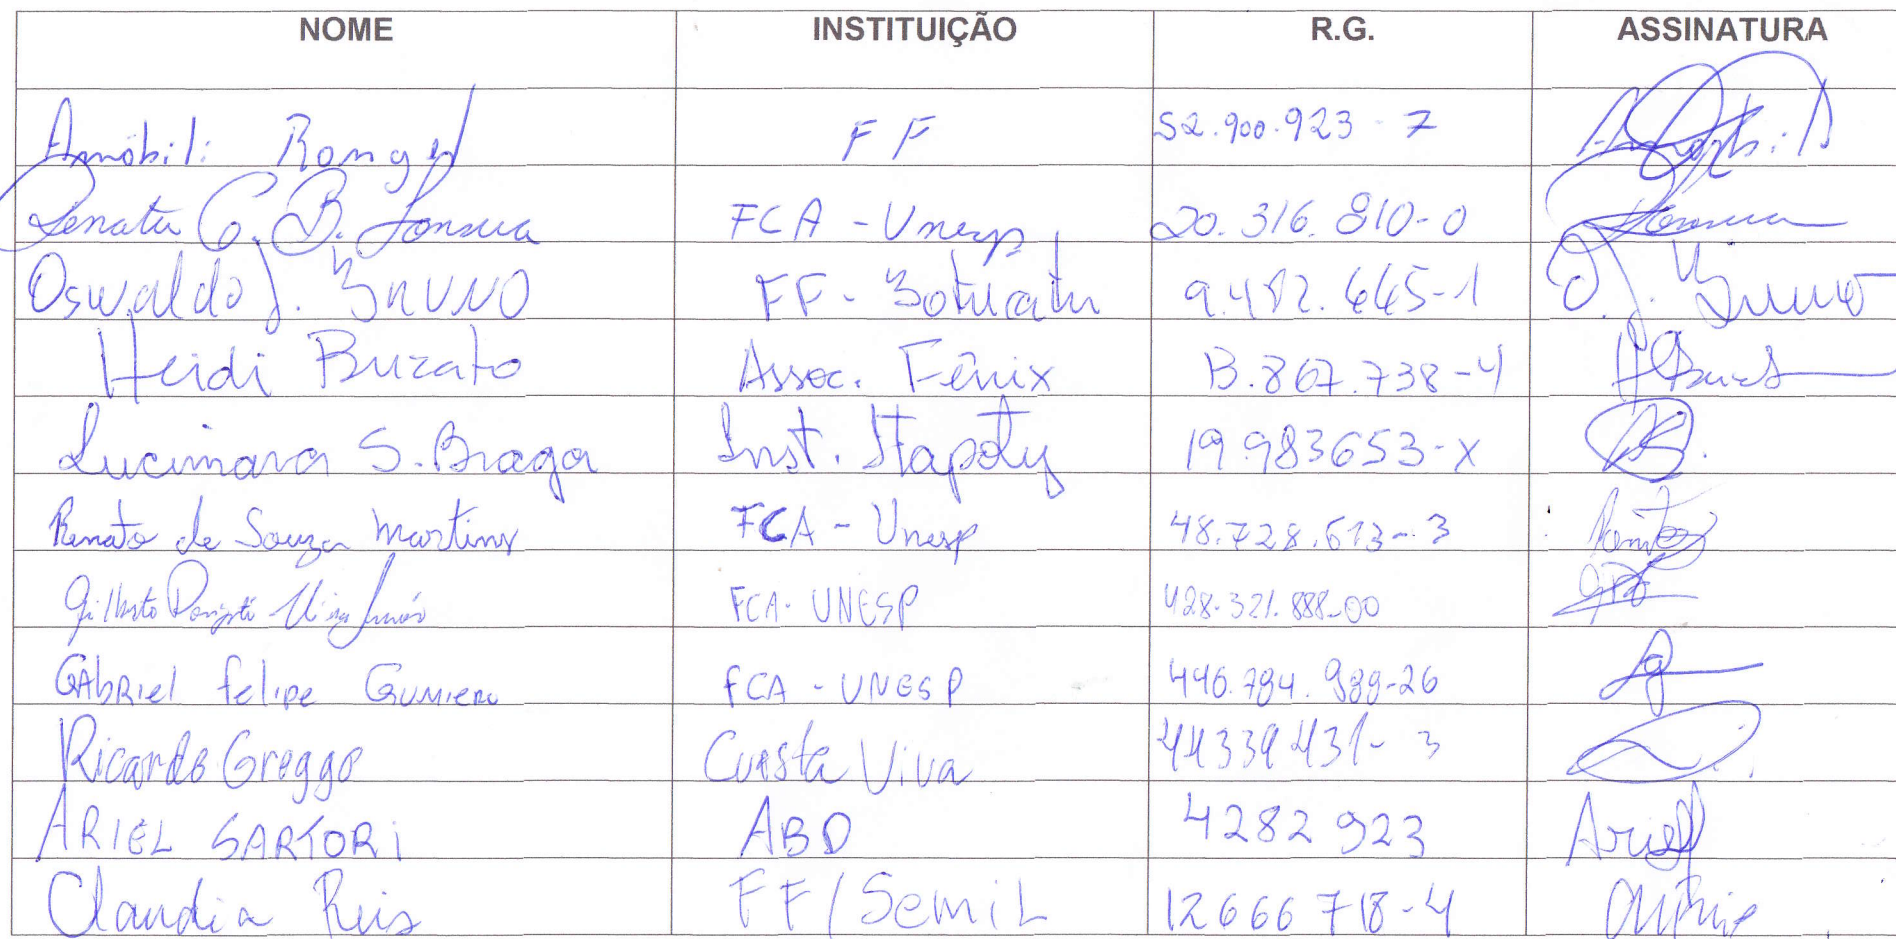 NOME INSTITUIÇÃO R.G. ASSINATURA
Amobili Rangel FF 52.900.923-7
Renata C. B. Fonseca FCA - Unesp 20.316.810-0 Fonseca
Oswaldo J. Bruno FF - Botucatu 9.482.665-1 O J. Bruno
Heidi Buzato Assoc. Fênix 13.867.738-4
Lucimara S. Braga Inst. Itapoty 19.983653-X
Renato de Souza Martins FCA - Unesp 48.728.613-3
Gilberto Junior FCA - UNESP 428.321.888-00
GAbRiel felipe Gumiero fCA - UNESP 446.794.989-26
Ricardo Greggo Cuesta Viva 44339431-3
ARIEL SARTORi ABD 4282923 Ariel
Claudia Reis FF/SemiL 12666718-4